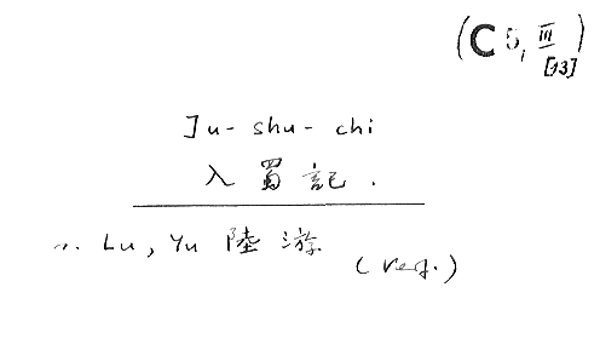 (C 5, III
[13])
Ju-shu-chi
入蜀記.
Lu, Yu 陸游
(reg.)